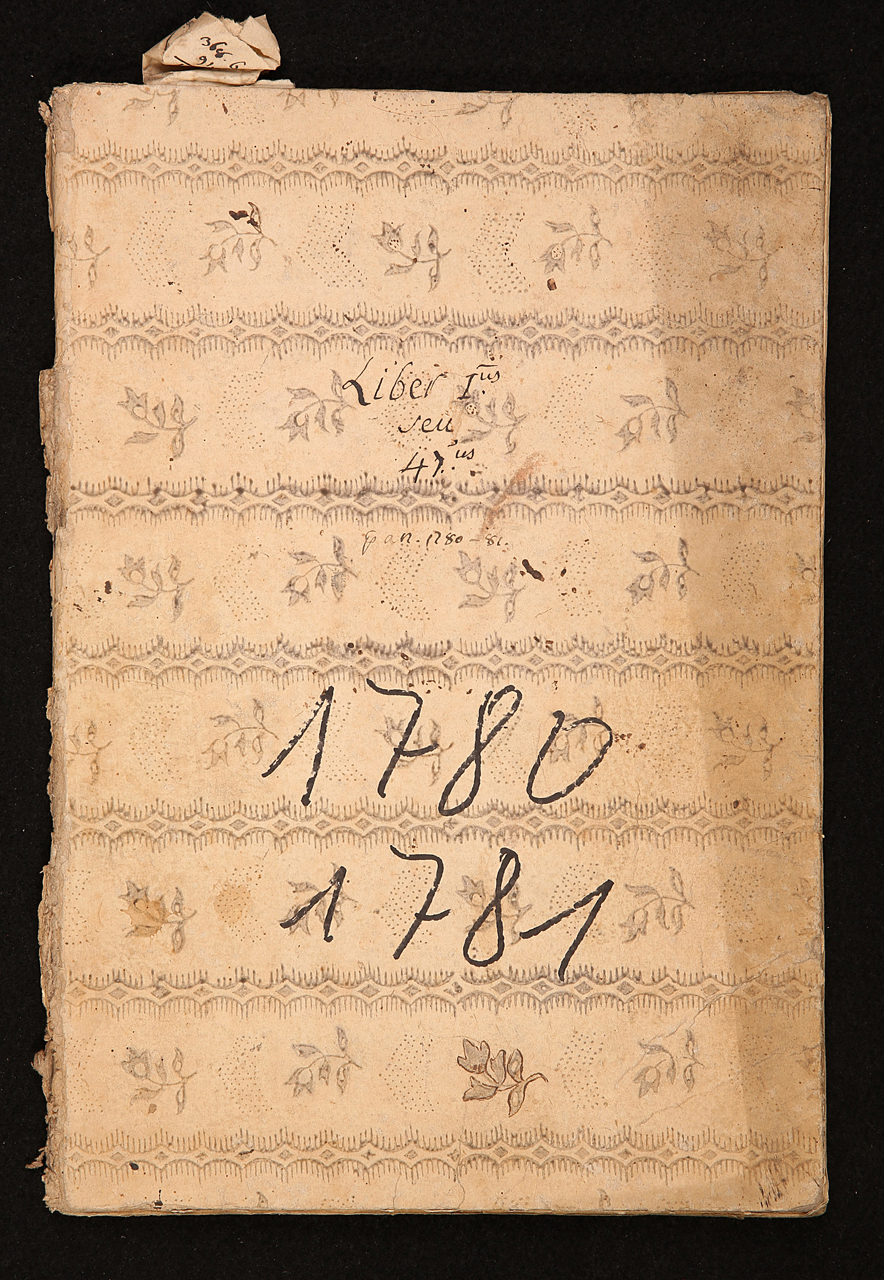 Liber I.ūs
seu
47.us
p an. 1780 - 81.
1780
1781